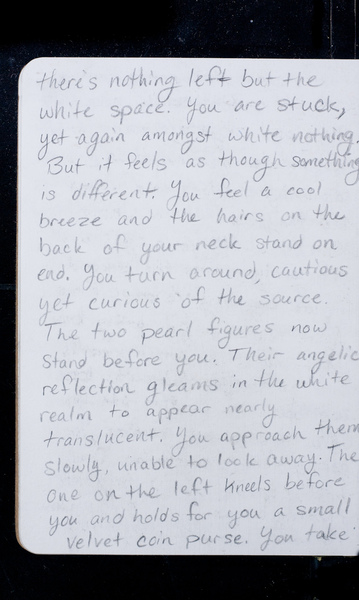 there's nothing left but the
white space. You are stuck,
yet again amongst white nothing.
But it feels as though something
is different. You feel a cool
breeze and the hairs on the
back of your neck stand on
end. You turn around, cautious
yet curious of the source.
The two pearl figures now
stand before you. Their angelic
reflection gleams in the white
realm to appear nearly
translucent. You approach them
slowly, unable to look away. The
one on the left kneels before
you and holds for you a small
velvet coin purse. You take